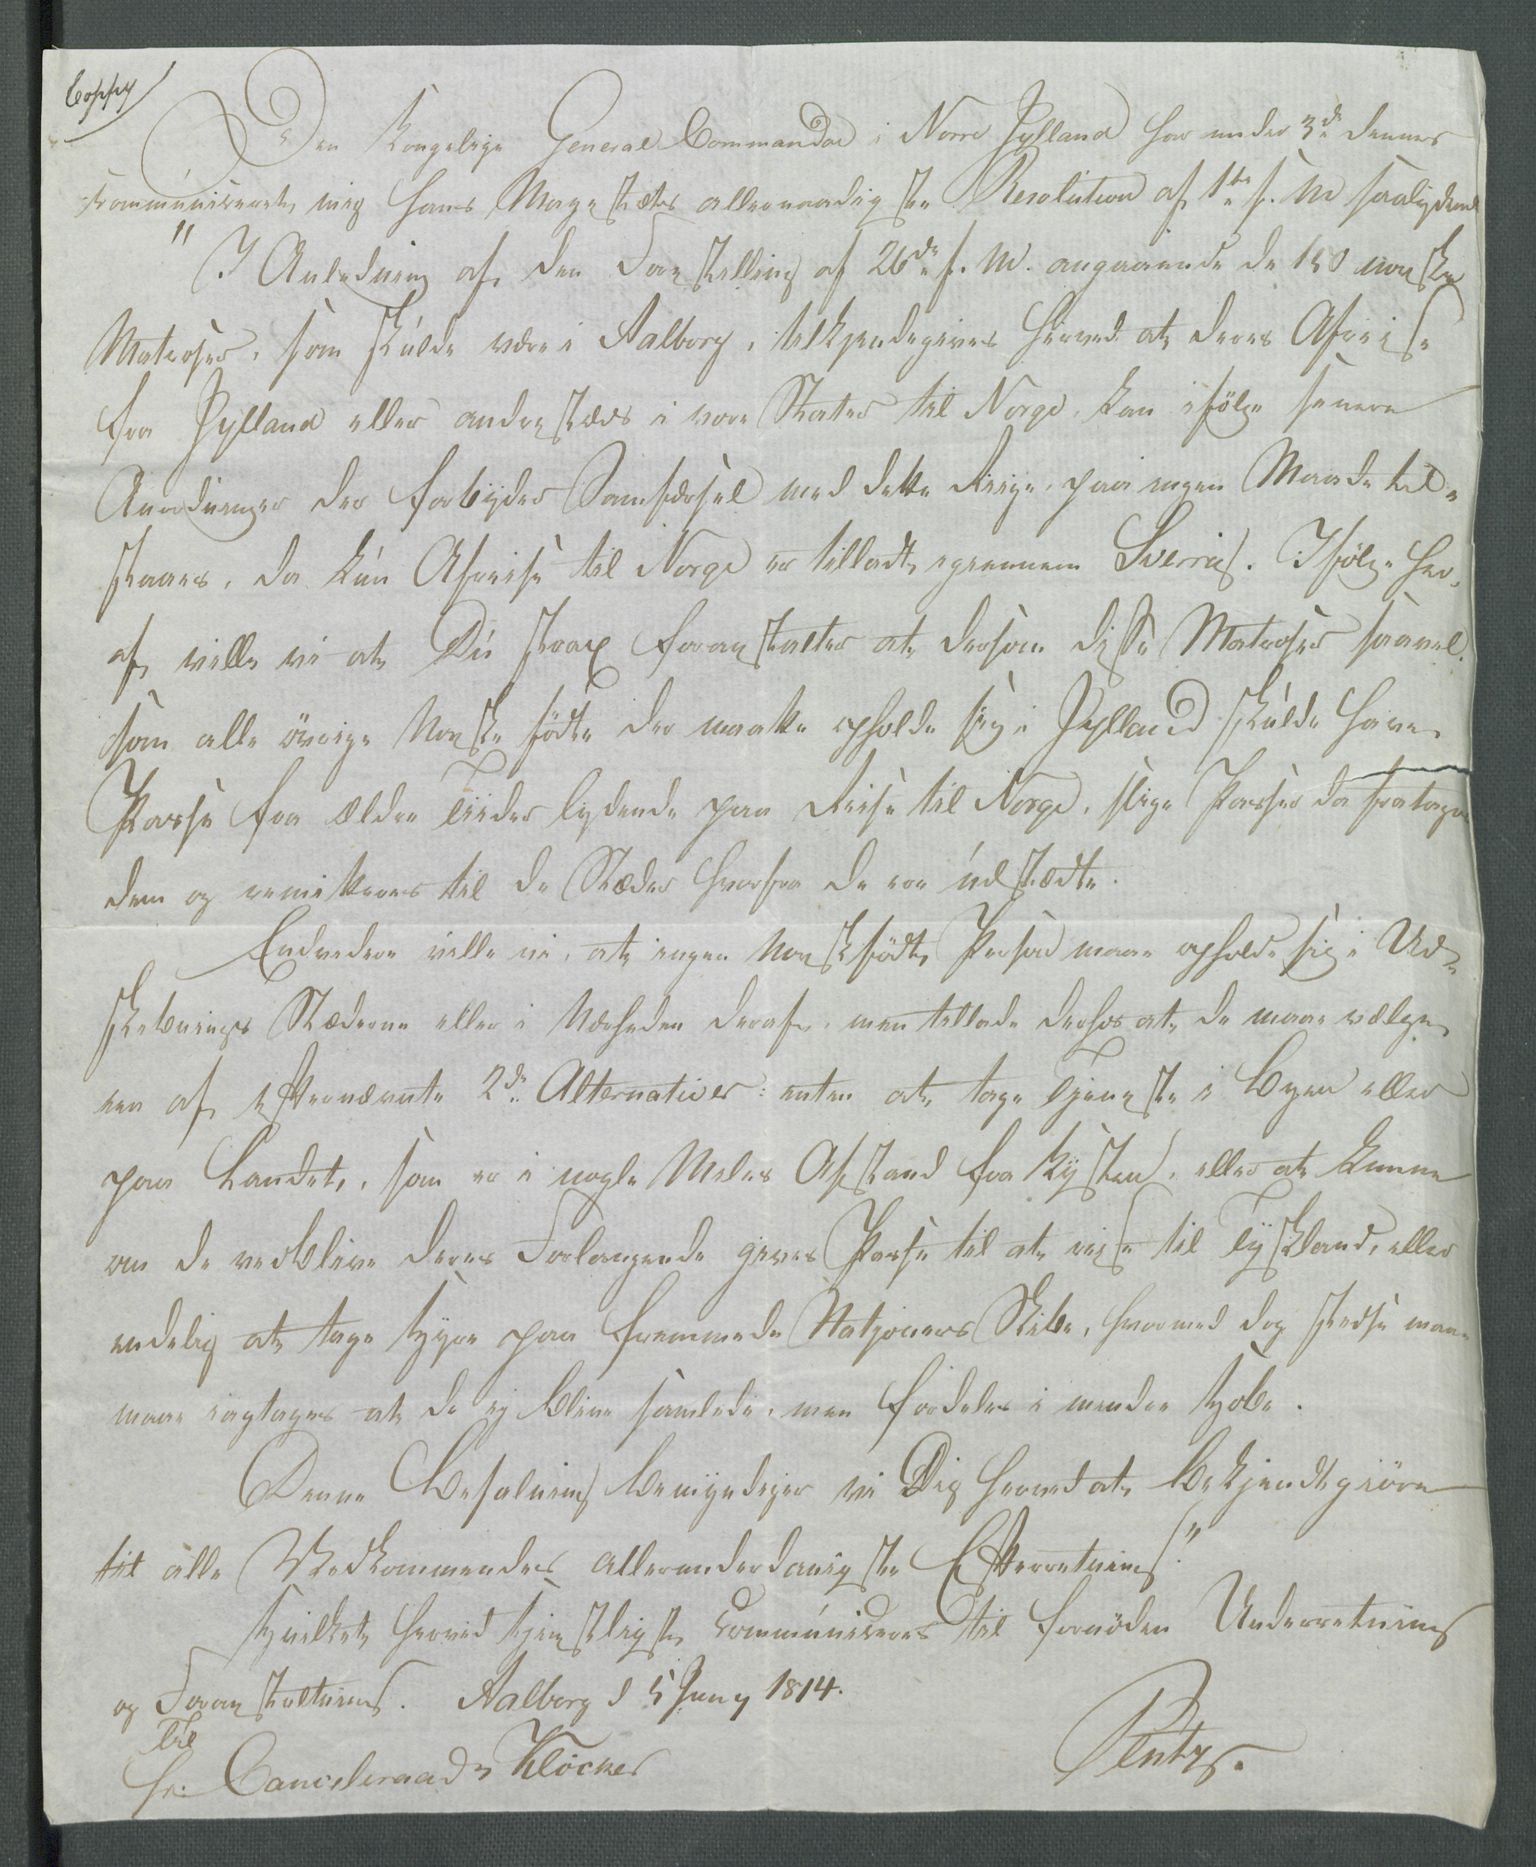 Coppy
Den Kongelige General Commandoe i Nørre Jylland har under 3de dennes
communiceret mig Hans Majestæts allernaadigste Resolution af 1te s. M. saalydende
"I Anledning af den Forestilling af 26de f. M. angaaende de 150 norske
Matroser, som skulde være i Aalborg, tilkjendegives herved at deres Afreise
fra Jylland eller andrestæds i vore Stater til Norge, kan ifølge senere
Anordninger der forbyder Samfærsel med dette Riige, paa ingen Maade til-
staaes, da kun Afreise til Norge er tilladt igiennem Sverrig. Ifølge her-
af ville vi at Du strax foranstalter at dersom disse Matroser saavel
som alle øvrige Norske fødte der maatte opholde sig i Jylland skulde have
Passe fra ældre Tiider lydende paa Reise til Norge, slige Passer da fratages
dem og remitteres til de Stæder hvorfra de ere udstædte.
Endvidere ville vi, at ingen Norskfødt Person maae opholde sig i Ud-
skibnings Stæderne eller i Nærheden deraf, men tillade derhos at de maae vælge
een af efternævnte 2de Alternativer: enten at tage Tjeneste i Byen eller
paa Landet, som er i nogle Miles Afstand fra Kysten, eller at kunne
om de vedblive deres Forlangende gives Passe til at reise til Tyskland, eller
endelig at tage Hyre paa fremmede Natjoners Skibe, hvormed dog stedse maae
maae iagtages at de ej blive samlede, men fordeles i mindre Hobe.
Denne Befalning bemyndiger vi Dig herved at bekjendtgiøre
til alle Vedkommendes allerunderdanigste Efterretning."
Hvilket herved tjenstligst communiceres til fornøden Underretning
og Foranstaltning. Aalborg d 5 Juny 1814.
Til
Hr. Cancelieraad Klöcker
Pentz.